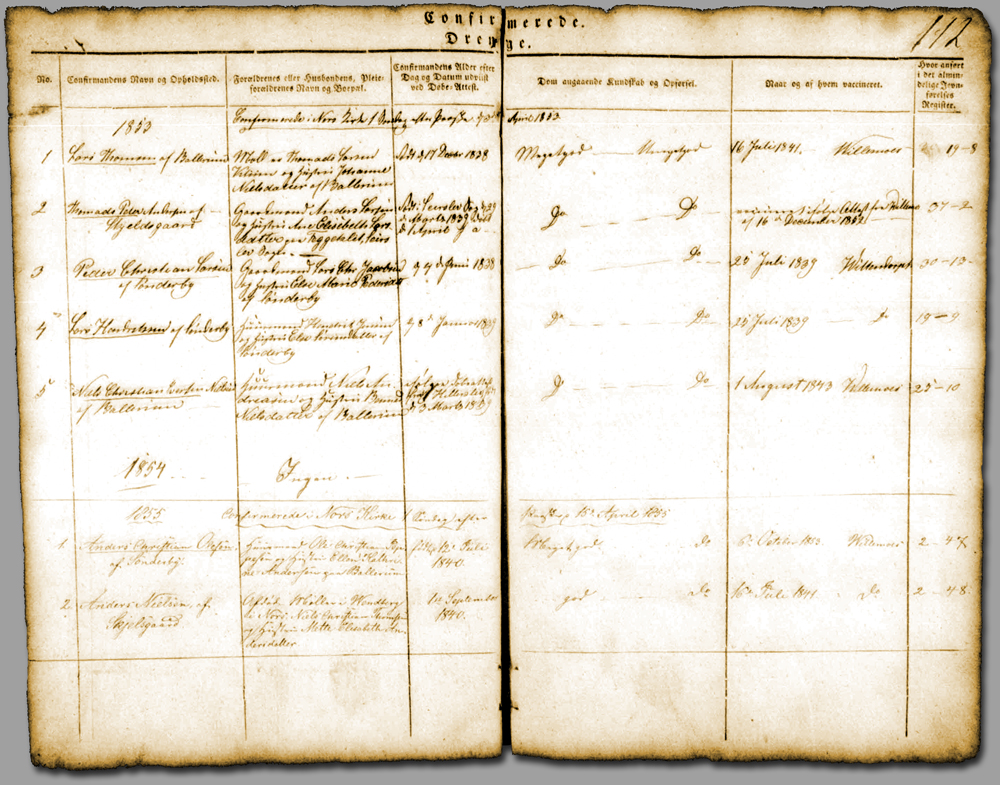 Confirmerede.
Drenge.
112
No.
Confirmandens Navn og Opholdssted.
Forældrenes eller Husbondens, Pleie-
forældrenes Navn og Boepæl.
Confirmandens Alder efter
Dag og Datum udviist
ved Døbe-Attest.
Dom angaaende Kundskab og Opførsel.
Naar og af hvem vaccineret.
Hvor anført
i det almin-
delige Jevn-
førelses
Register.
1853
Confirmerede i Nors Kirke 1 Søndag efter Paaske April 1853
1
Lars Thomsen af Ballerum
Møller Thomas Larsen
og Hustru Johanne
Nielsdatter af Ballerum
17 Decbr 1838
Meget god Meget god
16 Juli 1841. Willemoes
19-8
2
Thomas Peter Andersen af
Kjeldsgaard
Gaardmand Anders Larsen
og Hustru Ane Elisabeth Lars
datter
Marts 1839
d. 1 April
Do Do
af 16 December 1842
37-2
3
Peder Christian Larsen
af Sønderby
Gaardmand Lars Chr Jacobsen
og Hustru Else Marie Peders
af Sønderby
4 d Juni 1838
Do Do
25 Juli 1839 Willendorph
30-13
4
Lars Hendriksen af Sønderby
Huusmand Henrik Jensen
og Hustru Else
Sønderby
8 Januar 1839
Do Do
25 Juli 1839 Do
19-9
5
Niels Christian Iversen
af Ballerum
Huusmand Niels An-
dreasen og Hustru
Nielsdatter af Ballerum
Hillerslev
d. 3 Marts 1839
Do Do
1 August 1843 Willemoes
25-10
1854
Ingen
1855
Confirmerede i Nors Kirke 1 Søndag efter
Paaske 15de April 1855
1.
Anders Christian Olesen
af Sønderby.
Huusmand Ole Christian Jep-
pesen og Hustru Ellen Kathri-
ne Andersen paa Ballerum
13de Juli
1840.
Meget god do
6te October 1853. Willemoes
2-47
2.
Anders Nielsen af
Kjelsgaard
Afdød Møller i
Nors Niels Christian Thomsen
og Hustru Mette Elisabeth An-
dersdatter
1ste September
1840.
god Do
16de Juli 1841 Do
2-48.